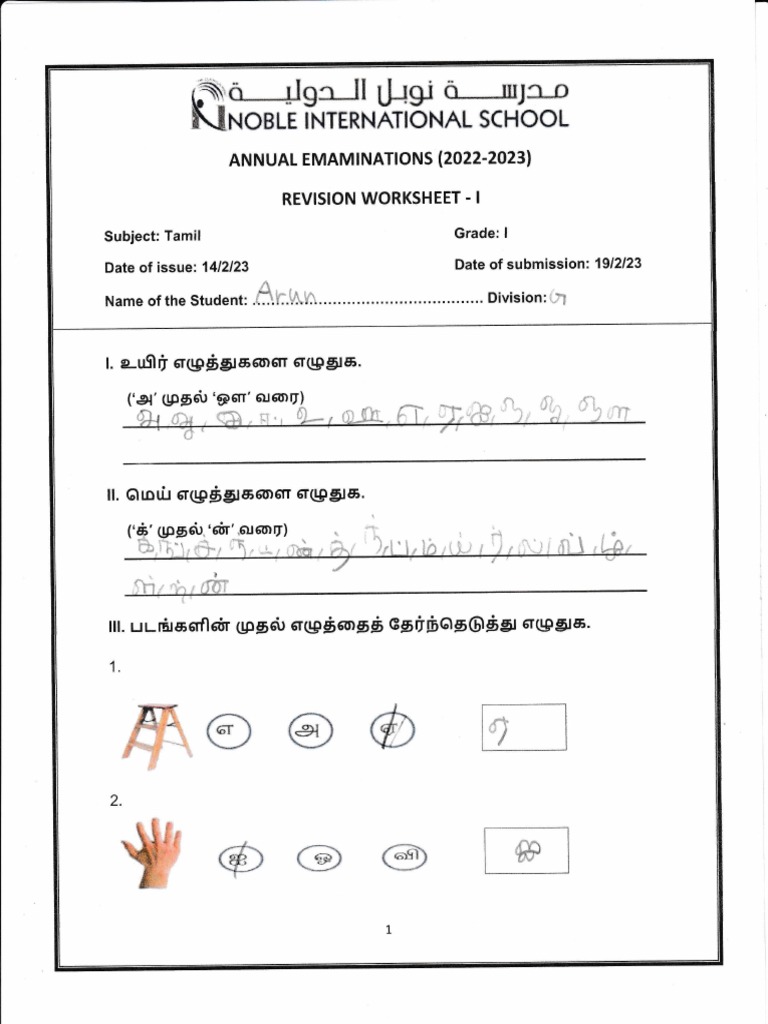 مدرسة نوبل الدولية
NOBLE INTERNATIONAL SCHOOL
ANNUAL EMAMINATIONS (2022-2023)
REVISION WORKSHEET - I
Subject: Tamil Grade: I
Date of issue: 14/2/23 Date of submission: 19/2/23
Name of the Student: Arun Division: G
I. உயிர் எழுத்துகளை எழுதுக.
('அ' முதல் 'ஔ' வரை)
அ, ஆ, இ, ஈ, உ, ஊ, எ, ஏ, ஐ, ஒ, ஓ, ஔ
II. மெய் எழுத்துகளை எழுதுக.
('க்' முதல் 'ன்' வரை)
III. படங்களின் முதல் எழுத்தைத் தேர்ந்தெடுத்து எழுதுக.
1.
எ அ ஏ ஏ
2.
ஐ ஒ வி ஐ
1